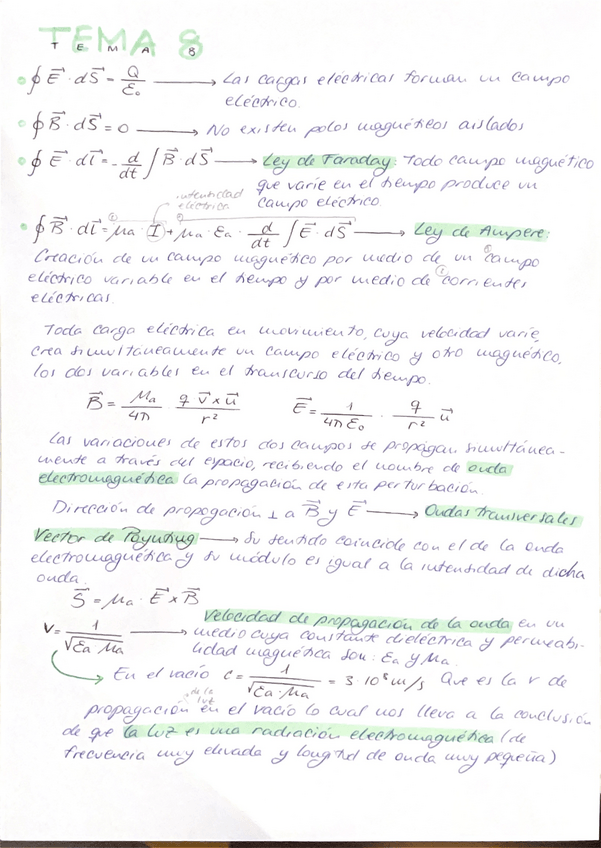 TEMA 8
T E M A 8
∮ E⃗ · dS⃗ = Q/ε₀ → Las cargas eléctricas forman un campo
eléctrico.
∮ B⃗ · dS⃗ = 0 → No existen polos magnéticos aislados
∮ E⃗ · dl⃗ = - d/dt ∫ B⃗ · dS⃗ → Ley de Faraday: Todo campo magnético
que varíe en el tiempo produce un
campo eléctrico.
intensidad
eléctrica
∮ B⃗ · dl⃗ = μa · I + μa · εa · d/dt ∫ E⃗ · dS⃗ → Ley de Ampere:
Creación de un campo magnético por medio de un campo
eléctrico variable en el tiempo y por medio de corrientes
eléctricas.
Toda carga eléctrica en movimiento, cuya velocidad varíe,
crea simultáneamente un campo eléctrico y otro magnético,
los dos variables en el transcurso del tiempo.
B⃗ = μa/4π · q v⃗ x u⃗/r² E⃗ = 1/4πε₀ · q/r² u⃗
Las variaciones de estos dos campos se propagan simultánea-
mente a través del espacio, recibiendo el nombre de onda
electromagnética la propagación de esta perturbación.
Dirección de propagación ⊥ a B⃗ y E⃗ → Ondas transversales
Vector de Poynting → Su sentido coincide con el de la onda
electromagnética y su módulo es igual a la intensidad de dicha
onda.
S⃗ = μa · E⃗ x B⃗
Velocidad de propagación de la onda en un
v = 1/√εa μa → medio cuya constante dieléctrica y permeabi-
lidad magnética son: εa y μa.
En el vacío c = 1/√εa · μa = 3 · 10⁸ m/s Que es la v de
de la
luz
propagación en el vacío lo cual nos lleva a la conclusión
de que la luz es una radiación electromagnética (de
frecuencia muy elevada y longitud de onda muy pequeña)